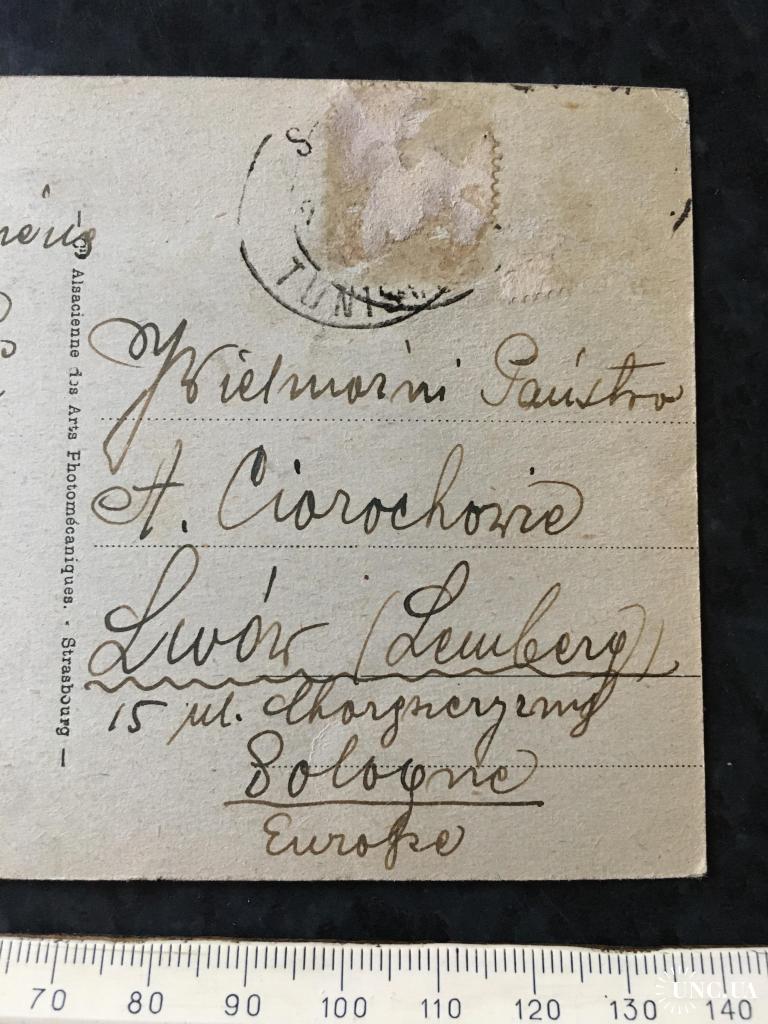 TUNIS
Wielmożni Państwo
A. Ciorochowie
Lwów (Lemberg)
15 ul. Chorąszczyzny
Pologne
Europe
Alsacienne des Arts Photomécaniques. - Strasbourg —
70 80 90 100 110 120 130 140
UNC.UA